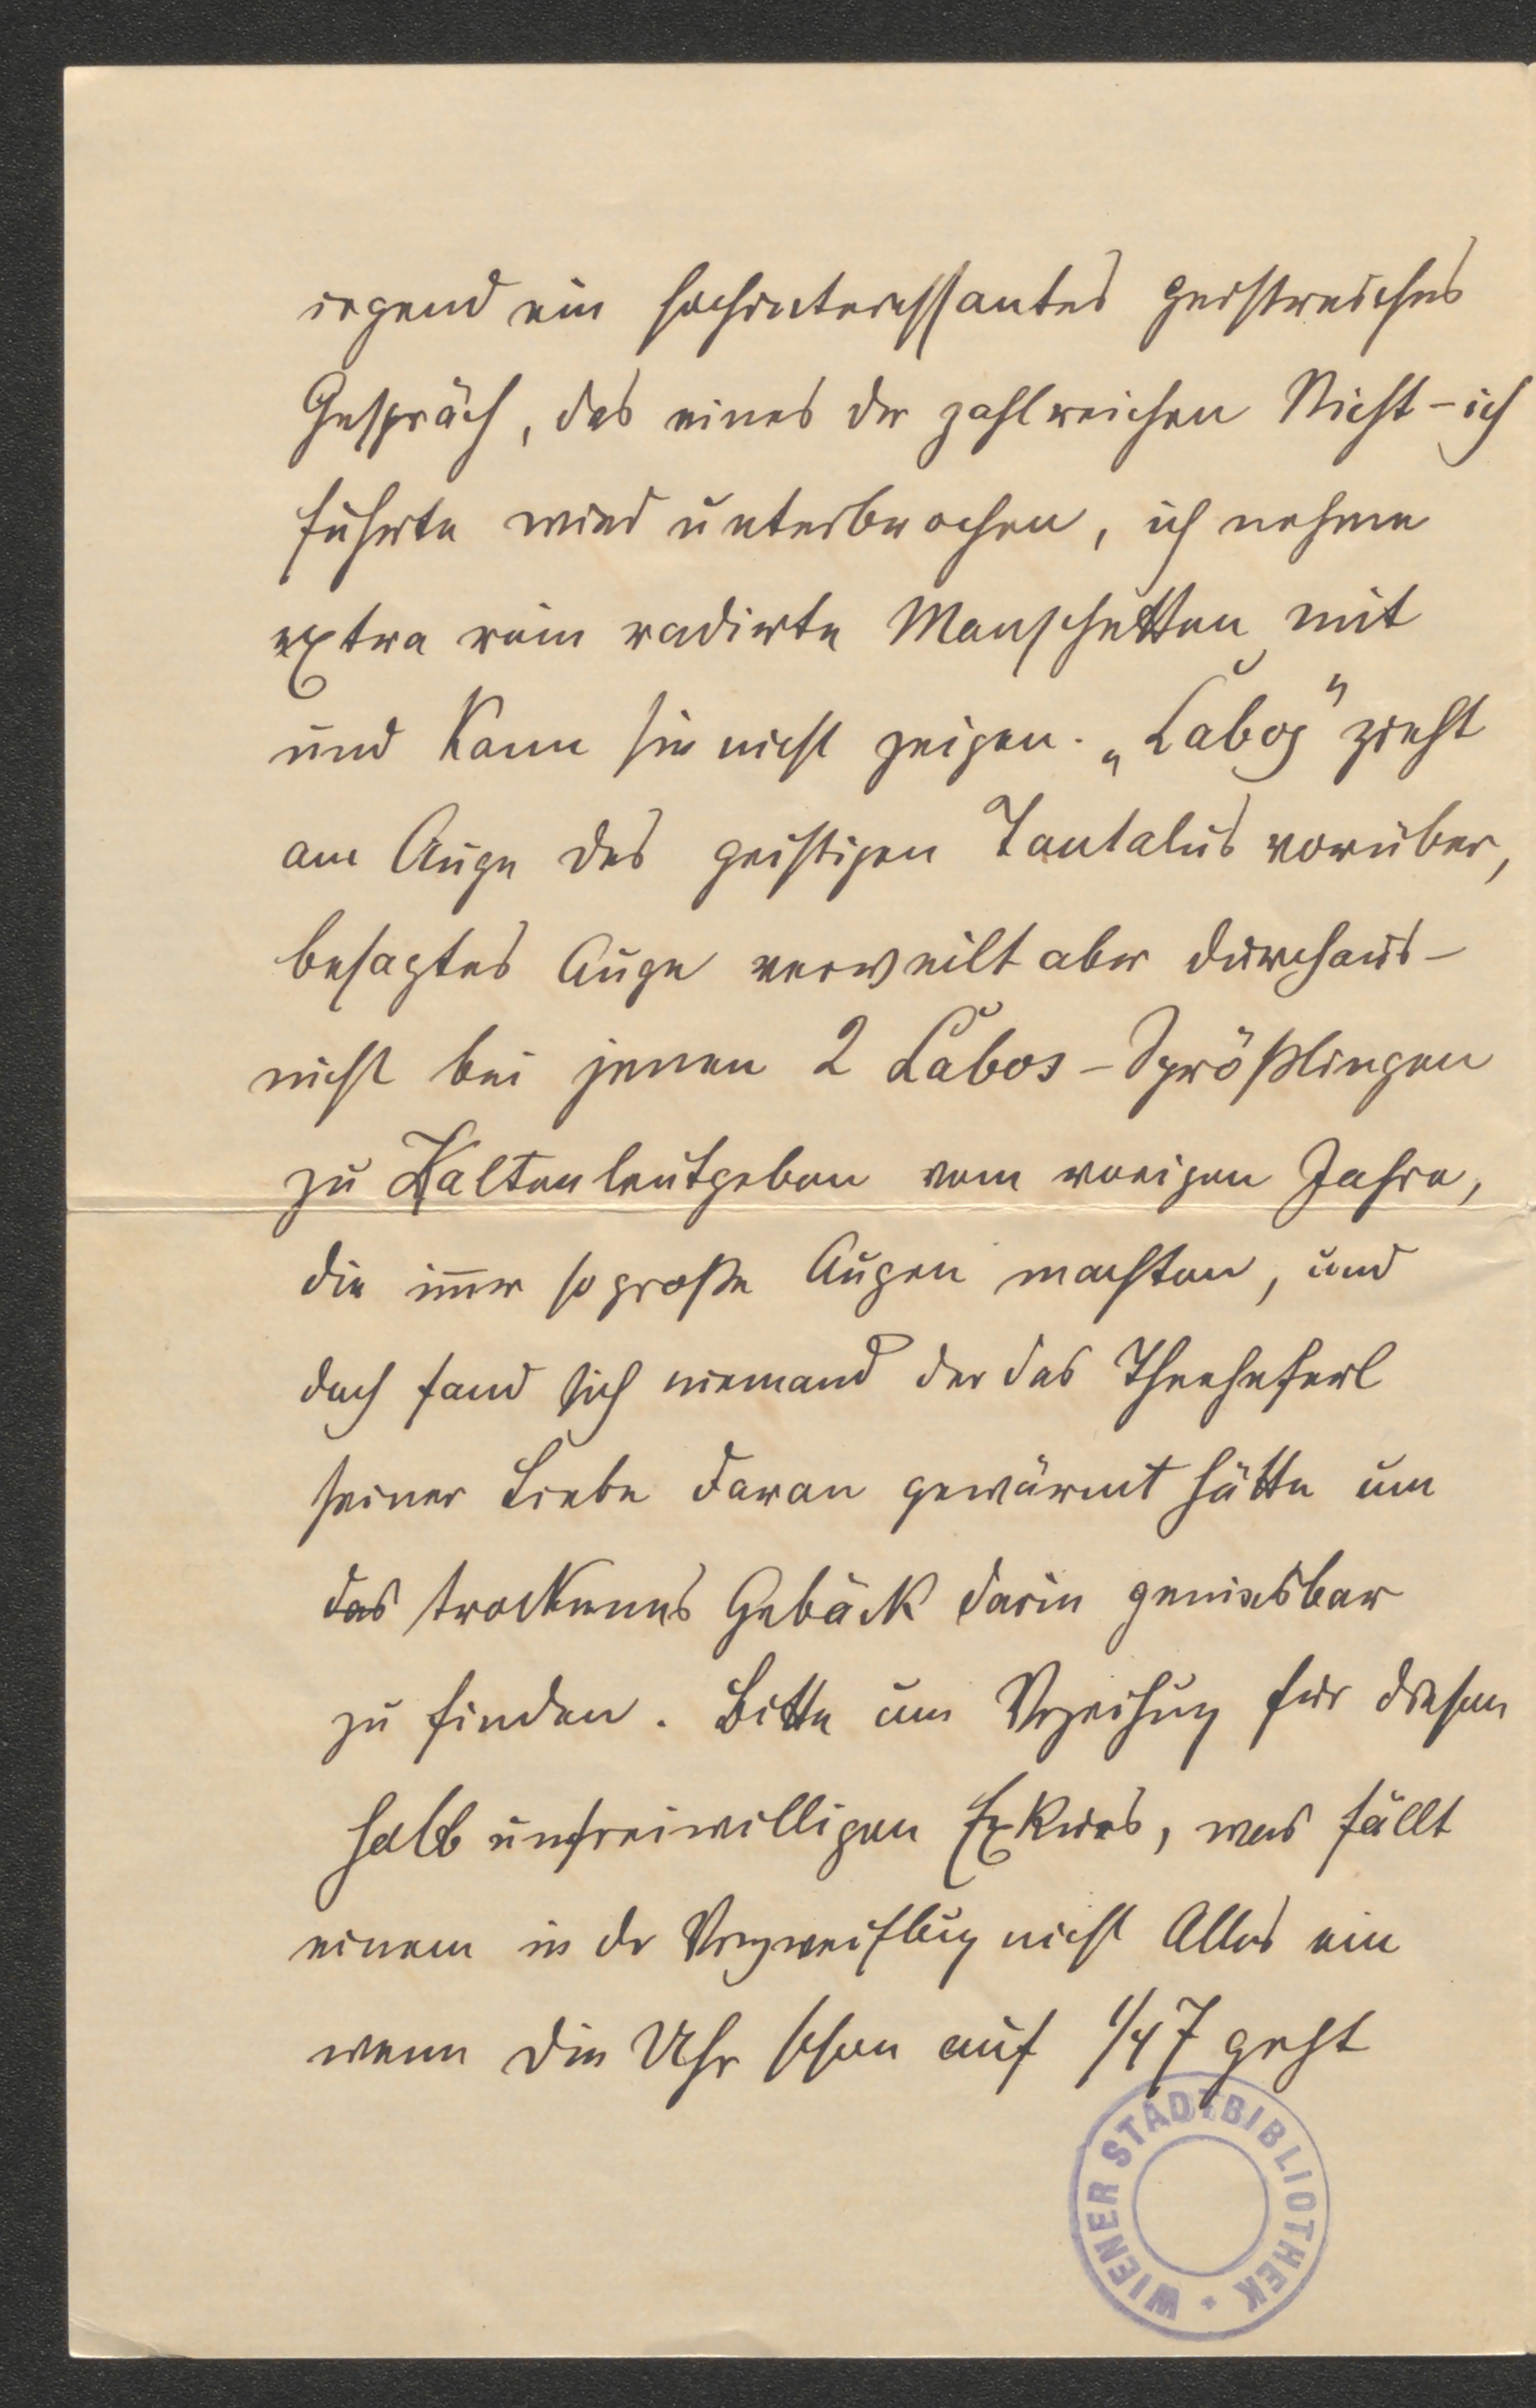 irgend ein hochinteressantes geistreiches
Gespräch, das eines der zahlreichen Nicht-ich
führte wird unterbrochen, ich nehme
extra rein radirte Manschetten mit
und kann sie nicht zeigen. „Labos" zieht
am Auge des geistigen Tantalus vorüber,
besagtes Auge verweilt aber durchaus-
nicht bei jenen 2 Labos-Sprößlingen
zu Kaltenleutgeben vom vorigen Jahre,
die im̅er so große Augen machten, und
doch fand sich niemand der das Theeheferl
seiner Liebe daran gewärmt hätte um
das trockenes Gebäck darin geniesbar
zu finden. Bitte um Vrzeihug für diesen
halb unfreiwilligen Exkurs, was fällt
einem in dr Vrzweiflug nicht Alles ein
wenn die Uhr schon auf 1/4 7 geht
WIENER STADTBIBLIOTHEK *